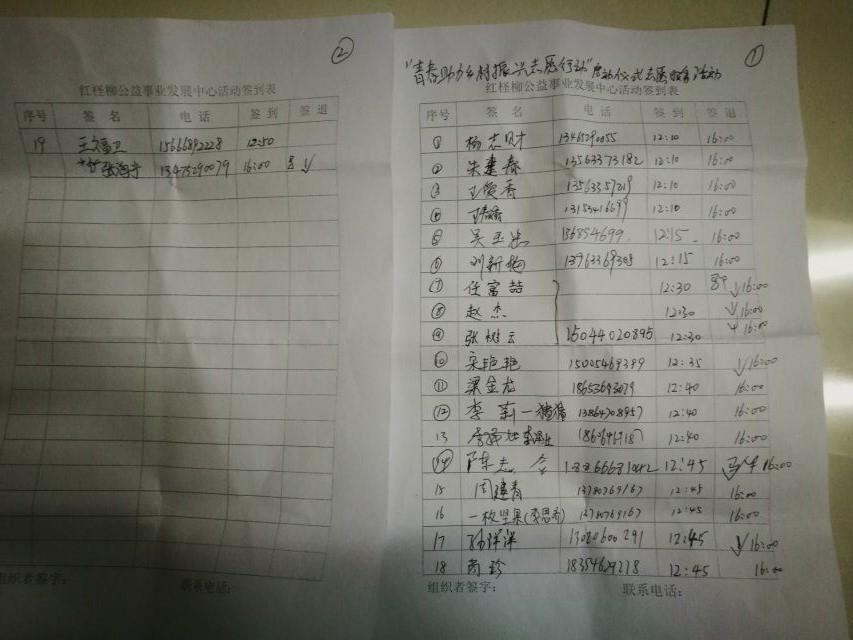 ②
红柽柳公益事业发展中心活动签到表
序号 签名 电话 签到 签退
19 王福卫 15666892228 12:50
13475290079 16:00
组织者签字: 联系电话:
①
"青春助力乡村振兴志愿行动"启动仪式志愿服务活动
红柽柳公益事业发展中心活动签到表
序号 签名 电话 签到 签退
① 杨志财 13465290055 12:10 16:00
② 朱建春 13563373182 12:10 16:00
③ 王俊香 13563357219 12:10 16:00
④ 13153416699 12:10 16:00
⑤ 吴玉忠 136854699 12:15 16:00
⑥ 刘新梅 12:15 16:00
⑦ 任富喆 12:30 16:00
⑧ 赵杰 12:30 16:00
⑨ 张树云 15044020895 12:30 16:00
⑩ 宋艳艳 15005469399 12:35 16:00
⑪ 梁金龙 18653693079 12:40 16:00
⑫ 李莉一猪猪 13864708957 12:40 16:00
13 12:40 16:00
⑭ 陈志 12:45 16:00
15 周建青 13780769167 12:45 16:00
16 一枚坚果(李恩希) 12:45 16:00
17 孙洋洋 12:45 16:00
18 芮珍 12:45 16:00
组织者签字: 联系电话: